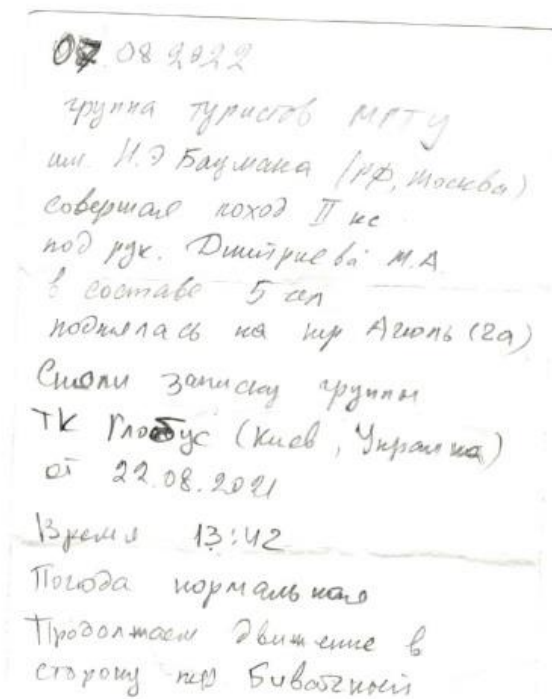 07.08.2022
группа туристов МГТУ
им. Н.Э Баумана (РФ, Москва)
совершая поход II кс
под рук. Дмитриева М.А
в составе 5 чел
поднялась на пер Агюль (2а)
Сняли записку группы
ТК Глобус (Киев, Украина)
от 22.08.2021
Время 13:42
Погода нормальная
Продолжаем движение в
сторону пер Бивачный